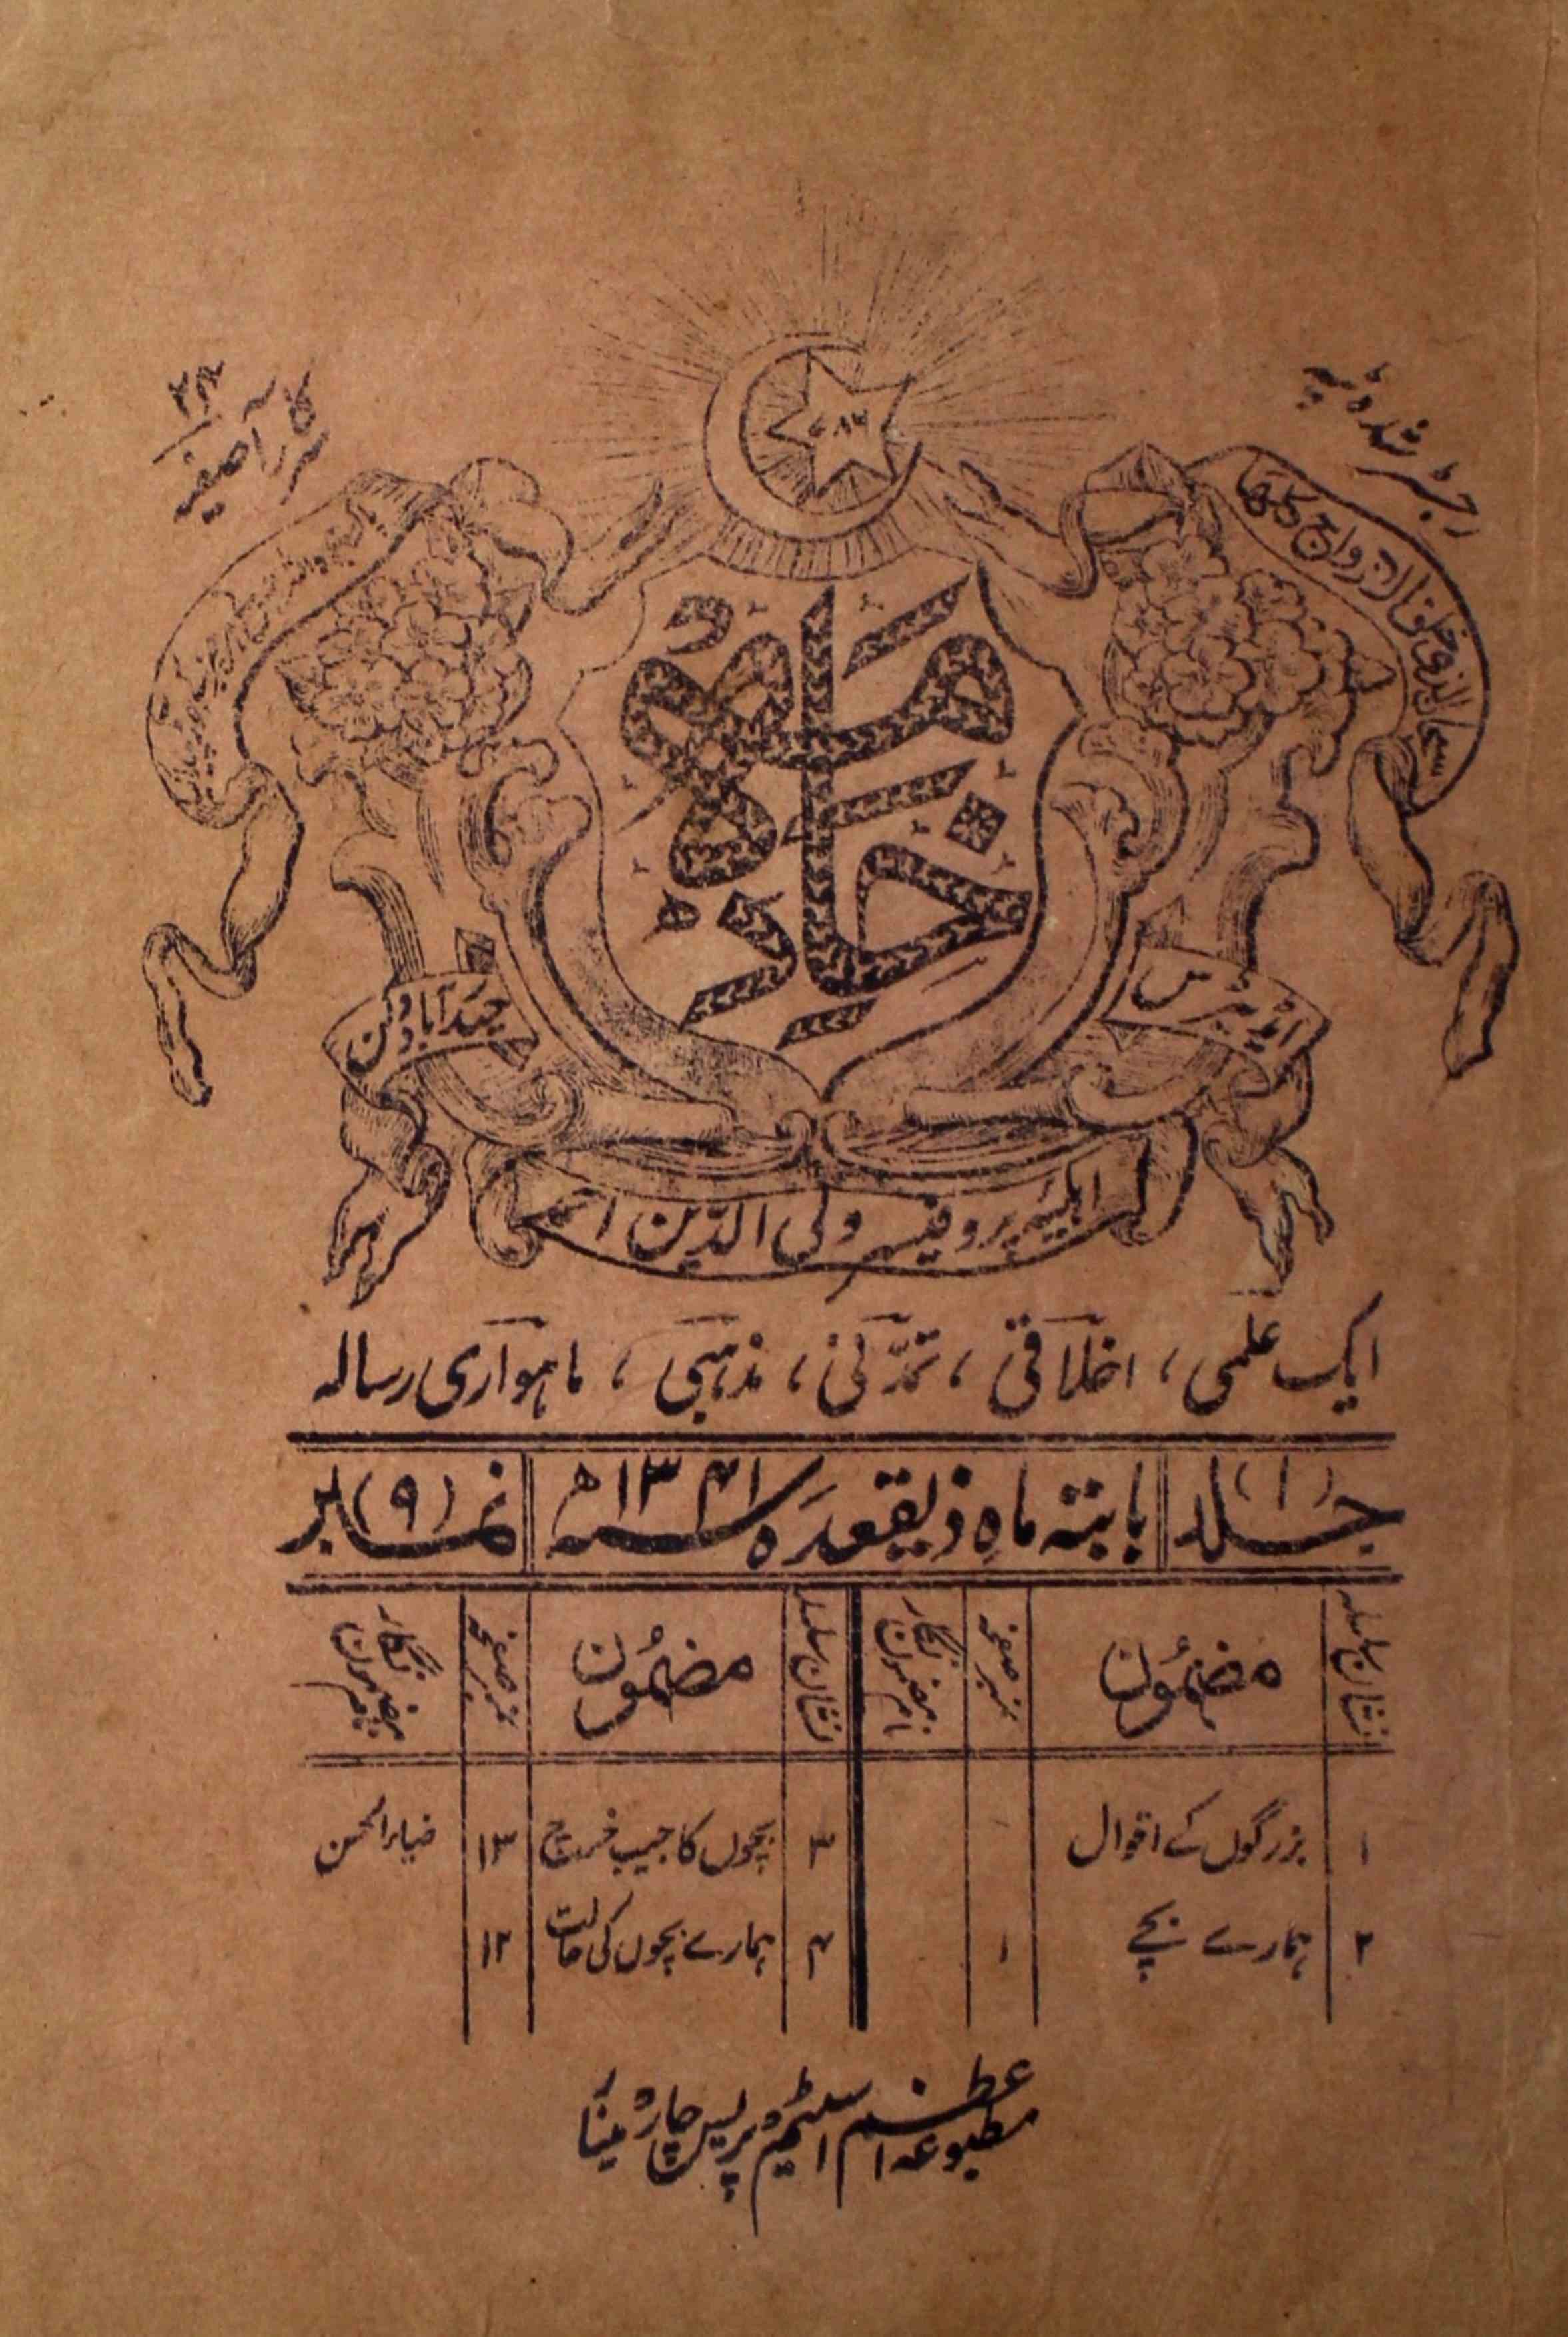 رجسٹر شدہ
سرکار آصفیہ
۷۸۶
خادمہ
اڈیٹرس
حیدرآباد دکن
اہلیہ پروفیسر ولی الدین احمد
ایک علمی ، اخلاقی ، تمدّنی ، مذہبی ، ماہواری رسالہ
جلد (۱) بابتہ ماہِ ذیقعدہ سنہ ۱۳۴۱ھ نمبر (۹)
نشان سلسلہ مضمُون نمبر صفحہ نام مضمون نگار نشان سلسلہ مضمُون نمبر صفحہ نام مضمون نگار
۱ بزرگوں کے اقوال ۳ بچوں کا جیب خرچ ۱۳ ضیاء الحسن
۲ ہمارے بچے ۱ ۴ ہمارے بچوں کی حالت ۱۲
مطبوعہ اعظم اسٹیم پریس چار مینار